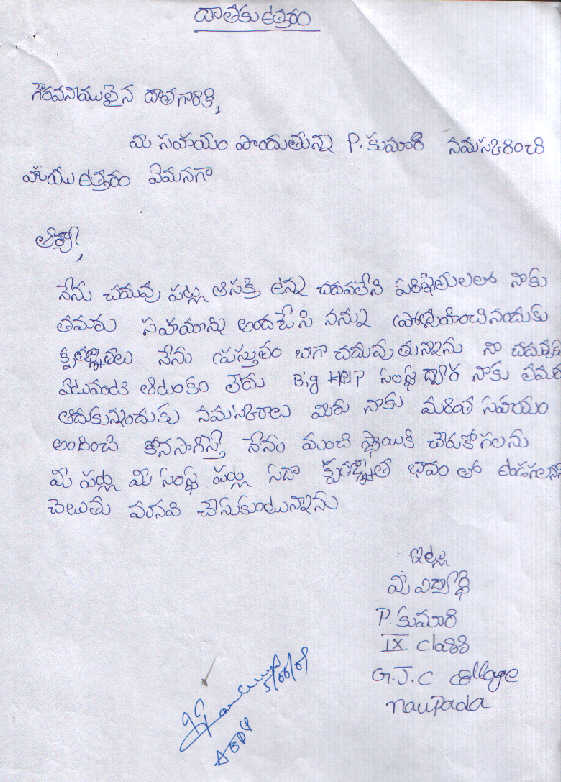 దాతకు ఉత్తరం
గౌరవనీయులైన దాతగారికి,
మీ సహయం పొందుతున్న P. కుమారి నమస్కరించి
వ్రాయు ఉత్తరం ఏమనగా
ఆర్యా!
నేను చదువు పట్ల ఆసక్తి ఉన్న చదవలేని పరిస్థితులలో నాకు
తమరు సహయాన్ని అందజేసి నన్ను ప్రోత్సహించినందుకు
కృతజ్ఞతలు నేను ప్రస్తుతం బాగా చదువుతున్నాను నా చదువుకి
ఏటువంటి ఆటంకం లేదు Big HELP సంస్థ ద్వార నాకు తమరు
ఆదుకున్నందుకు నమస్కారాలు మీరు నాకు మరింత సహయం
అందించి కొనసాగిస్తే నేను మంచి స్థాయికి చేరుకోగలను
మీ పట్ల మీ సంస్థ పట్ల సదా కృతజ్ఞతా భావం తో ఉండగలనని
చెబుతు మనవి చేసుకుంటున్నాను
ఇట్లు
మీ విద్యార్థి
P. కుమారి
IX class
G.J.C college
naupada
5/06/09